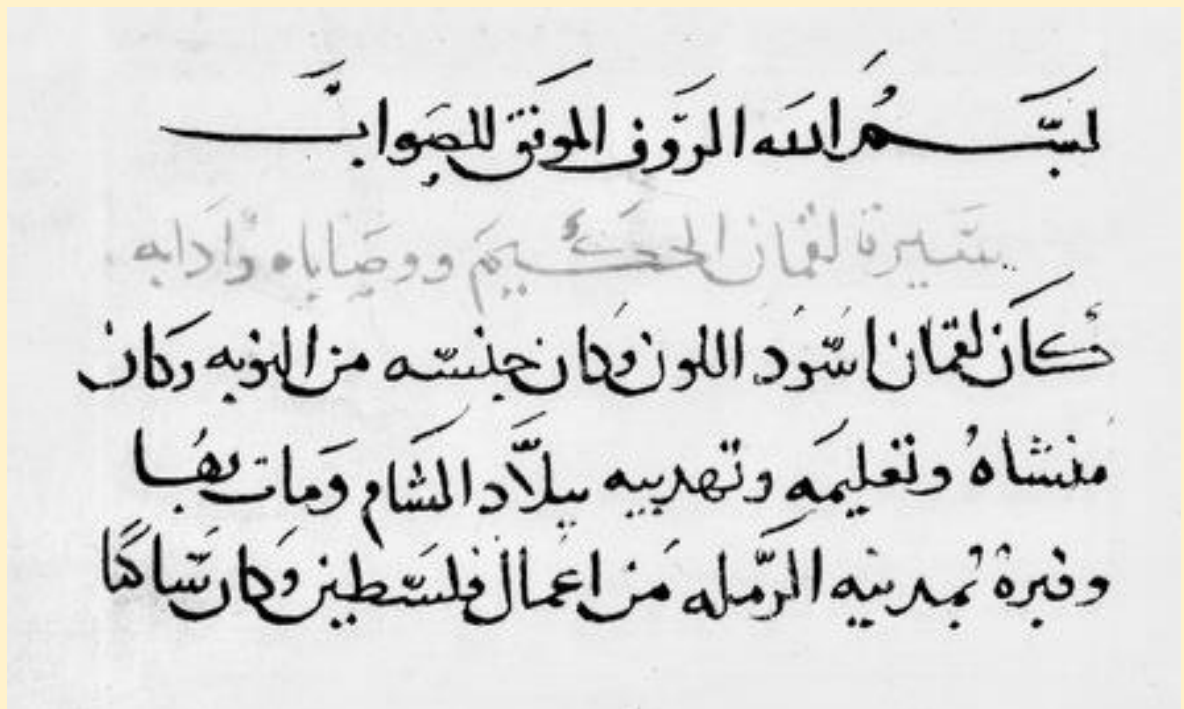 بسم الله الروف الموفق للصواب
سيرة لقمان الحكيم ووصاياه وادابه
كان لقمان اسود اللون وكان جنسه من النوبه وكان
منشاه وتعليمه وتهديبه ببلاد الشام ومات بها
وقبرة بمدينه الرمله من اعمال فلسطين وكان ساكنا